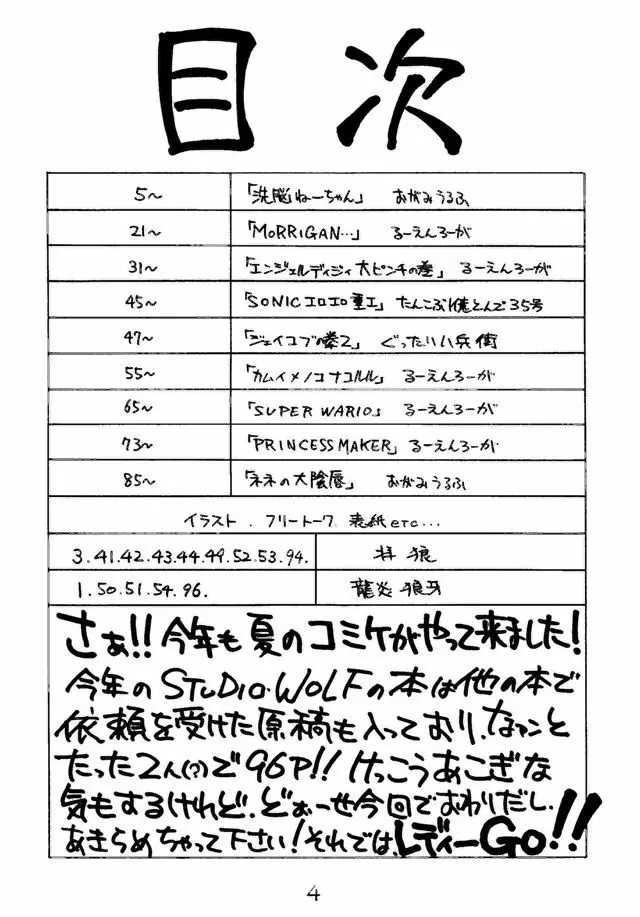 目次
5～ 「洗脳ねーちゃん」 おがみうるふ
21～ 「MORRIGAN…」 るーえんろーが
31～ 「エンジェルディジィ大ピンチの巻」 るーえんろーが
45～ 「SONICエロエロ重工」 たんこぶり億とんで35号
47～ 「ジェイコブの拳2」 ぐったりハ兵衛
55～ 「カムイメノコナコルル」 るーえんろーが
65～ 「SUPER WARIO」 るーえんろーが
73～ 「PRINCESS MAKER」 るーえんろーが
85～ 「ネネの大陰唇」 おがみうるふ
イラスト.フリートーク 表紙etc...
3.41.42.43.44.49.52.53.94. 拝 狼
1.50.51.54.96. 龍炎 狼牙
さぁ!!今年も夏のコミケがやって来ました!
今年のSTUDIO・WOLFの本は他の本で
依頼を受けた原稿も入っており、なァンと
たった2人(?)で96P!! けっこうあこぎな
気もするけれど、どぉーせ今回でおわりだし、
あきらめちゃって下さい!それでは、レディーGo!!
4